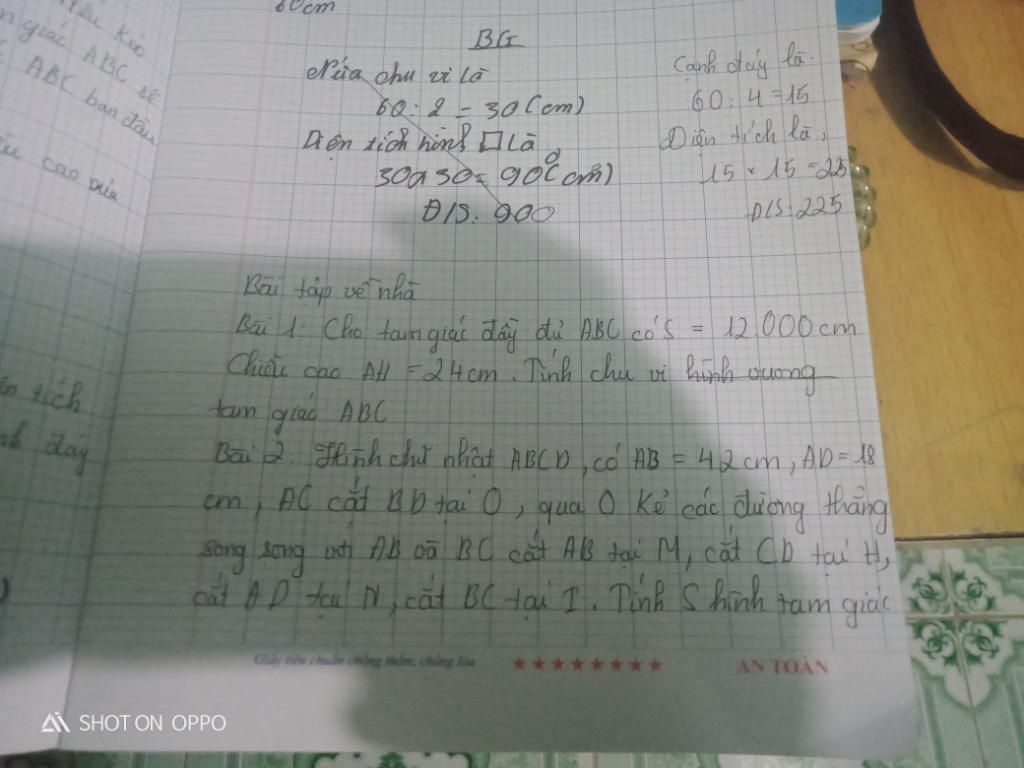 60cm
BG
Nửa chu vi là
60 : 2 = 30 (cm)
Diện tích hình □ là
30 x 30 = 900 (cm)
Đ/S : 900
Cạnh đáy là :
60 : 4 = 15
Diện tích là,
15 x 15 = 225
Đ/S : 225
kéo
giác ABC sẽ
ABC ban đầu
cao của
tích
đáy
Bài tập về nhà
Bài 1. Cho tam giác đầy đủ ABC có S = 12 000 cm
Chiều cao AH = 24 cm . Tính chu vi hình vuong
tam giác ABC
Bài 2. Hình chữ nhật ABCD, có AB = 42 cm, AD = 18
cm, AC cắt BD tại O , qua O kẻ các đường thẳng
song song với AB và BC cắt AB tại M, cắt CD tại H,
cắt AD tại N, cắt BC tại I . Tính S hình tam giác
Giấy tiêu chuẩn chống thấm, chống lóa ★★★★★★★★ AN TOÀN
SHOT ON OPPO